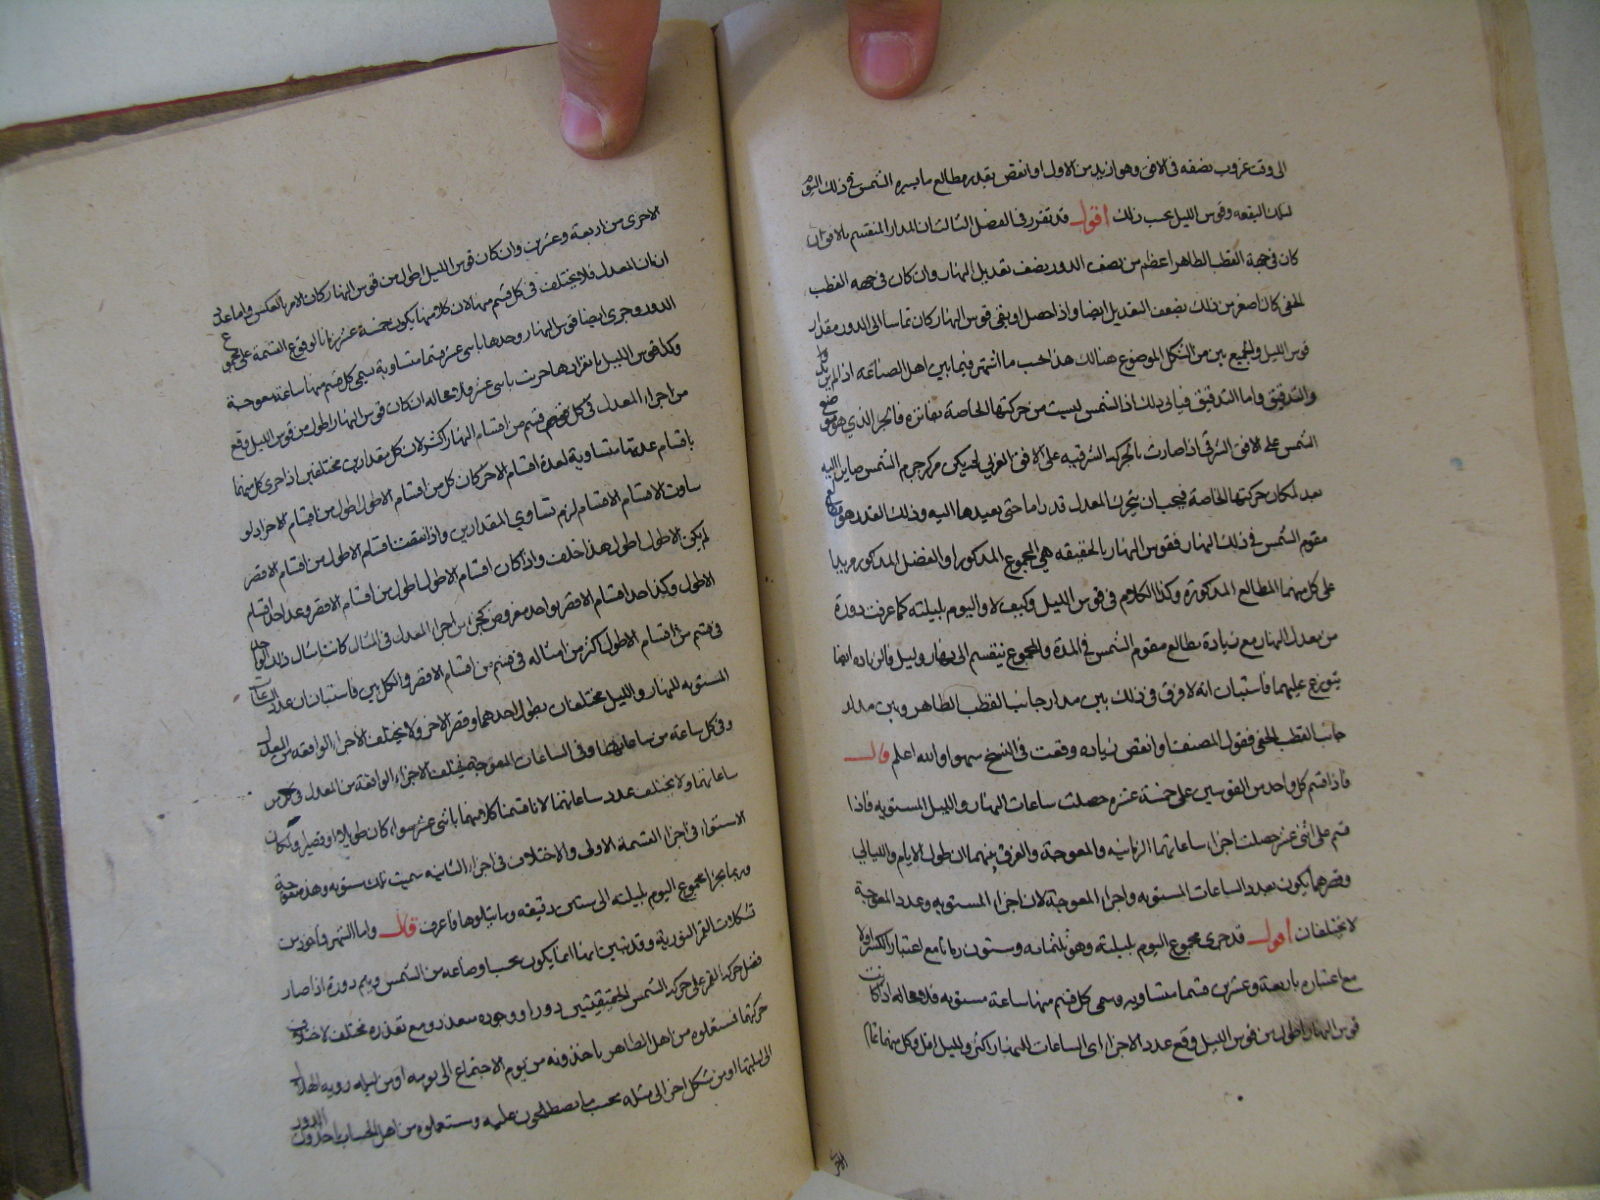 الى وقت غروب نصفه فى الافق وهو ازيد من الاول او انقص بقدر مطالع ما يسيره الشمس فى ذلك اليوم
لتلك البقعه وقوس الليل بحسب ذلك اقول قد تقرر فى الفصل الثالث ان المدار المنقسم بالافق ان
كان فى جهة القطب الظاهر اعظم من نصف الدور بضعف تعديل النهار وان كان فى جهه القطب
الخفى كان اصغر من ذلك بضعف التعديل ايضا واذا حصل او بقى قوس النهار كان تمامها الى الدور مقدار
قوس الليل والجميع بين من الشكل الموضوع هنالك هذا حسب ما اشتهر فيما بين اهل الصناعه اذ لم يرد
والتدقيق واما التدقيق فياتى ذلك اذ الشمس ليست من حركتها الخاصة بفاتره فالجزء الذي هو
الشمس على الافق الشرقى اذا صارت بالحركه الشرقيه على الافق الغربى لم يكن مركز جرم الشمس صايرا اليه
بعد لمكان حركتها الخاصة فيجب ان يتحرك المعدل قدرا ما حتى يعيدها اليه وذلك القدر هو
مقوم الشمس فى ذلك النهار فقوس النهار بالحقيقه هى المجموع المذكور او الفضل المذكور مزيدا
على كل منهما المطالع المذكورة وكذا الكلام فى قوس الليل وكيف لا واليوم بليلته كما عرفت دورة
من معدل النهار مع زيادة مطالع مقوم الشمس فى المدة والمجموع ينقسم الى نهار وليل فالزياده ايضا
يتوزع عليهما فاستبان انه لا فرق فى ذلك بين مدار جانب القطب الظاهر وبين مدار
جانب القطب الخفى فقول المصنف او انقص زياده وقعت فى النسخ سهوا والله اعلم قال
فاذا قسم كل واحد من القوسين على خمسة عشره حصلت ساعات النهار والليل المستويه فاذا
قسم على اثنى عشر حصلت اجزاء ساعاتهما الزمانيه والمعوجة والفرق بينهما ان طول الايام والليالي
وقصرهما يكون بعدد الساعات المستويه واجزاء المعوجة لان اجزاء المستويه وعدد المعوجة
لا يختلفان اقول قد جرى مجموع اليوم بليلته وهو ثلثمائه وستون زمانا مع اعتبار الكسر اولا
مع اعتباره باربعة وعشرين قسما متساويه وسمى كل قسم منها ساعة مستويه فلا محاله اذا كانت
قوس النهار اطول من قوس الليل وقع عدد الاجزاء اى الساعات للنهار اكثر ولليل اقل وكل منهما
الاخرى من اربعة وعشرين وان كان قوس الليل اطول من قوس النهار كان الامر بالعكس واما عدد
ازمان المعدل فلا يختلف فى كل قسم منها لان كلا منها يكون خمسة عشر زمانا لوقوع القسمة على مجموع
الدور وجرى ايضا قوس النهار وحدها باثنى عشر قسما متساوية يسمى كل قسم منها ساعة معوجة
وكذا قوس الليل بانفرادها جزيت باثنى عشر فلا محاله ان كان قوس النهار اطول من قوس الليل وقع
من اجزاء المعدل فى كل قسم من اقسام النهار اكثر لان كل مقدارين مختلفين اذا جرى كل منهما
باقسام عدتها متساوية لعدة اقسام الاخر كان كل من اقسام الاطول اطول من اقسام الاخر اذ لو
ساوت الاقسام الاقسام لزم تساوي المقدارين واذا نقصت اقسام الاطول من اقسام الاقصر
لم يكن الاطول اطول هذا خلف واذا كان اقسام الاطول اطول من اقسام الاقصر وعد احد اقسام
الاطول وكذا احد اقسام الاقصر بواحد مفروض كجزء من اجزاء المعدل فى المثال كانت امثال ذلك الواحد
فى قسم من اقسام الاطول اكثر من امثاله فى قسم من اقسام الاقصر والكل بين فاستبان ان عدد الساعات
المستويه للنهار والليل مختلفان بطول احدهما وقصر الاخر ولا يختلف الاجزاء الواقعه من المعدل
وفى كل ساعة من ساعاتهما وفى الساعات المعوجة يختلف الاجزاء الواقعة من المعدل فى
ساعاتهما ولا يختلف عدد ساعاتهما لانا قسمنا كلا منهما باثنى عشر سواء كان طويلا او قصيرا ولمكان
الاستواء فى اجزاء القسمة الاولى والاختلاف فى اجزاء الثانيه سميت تلك مستويه وهذه معوجة
وربما يجزأ مجموع اليوم بليلته الى ستين دقيقه وما يتلوها فاعرف قال واما الشهر فماخوذ من
تشكلات القمر النوريه وقد تبين انها انما يكون بحسب اوضاعه من الشمس ويتم دورة اذا صار
فضل حركة القمر على حركة الشمس الحقيقيتين دورا ووجوده متعذر ومع تعذره مختلف لاختلاف
حركتهما فمستعملوه من اهل الظاهر ياخذونه من يوم الاجتماع الى يومه او من ليله رويه الهلال
الى ليلتها او من شكل اخر الى مثله بحسب ما يصطلحون عليه ومستعملوه من اهل الحساب ياخذون الدور